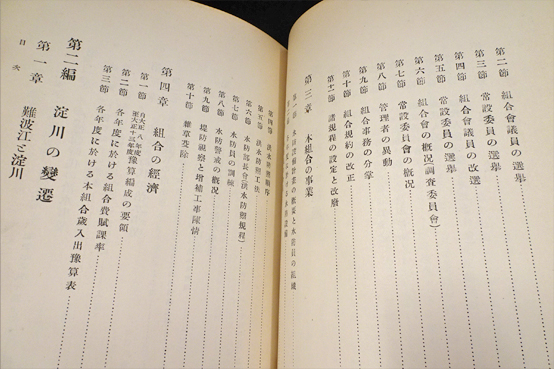 第二節 組合會議員の選擧
第三節 常設委員の選擧
第四節 組合會議員の改選
第五節 常設委員の選擧
第六節 組合會の概況(調査委員會)
第七節 常設委員會の概況
第八節 管理者の異動
第九節 組合事務の分掌
第十節 組合規約の改正
第十一節 諸規程の設定と改廢
第三章 本組合の事業
第五節 洪水防禦工法
第七節 水防員の訓練
第八節 水防警戒の概況
第九節 堤防視察と增補工事陳情
第十節 雜草芟除
第四章 組合の經濟
第一節 自大正八年度至大正十三年度豫算編成の要領
第二節 各年度に於ける組合費賦課率
第三節 各年度に於ける本組合歲入出豫算表
第二編 淀川の變遷
第一章 難波江と淀川
目次